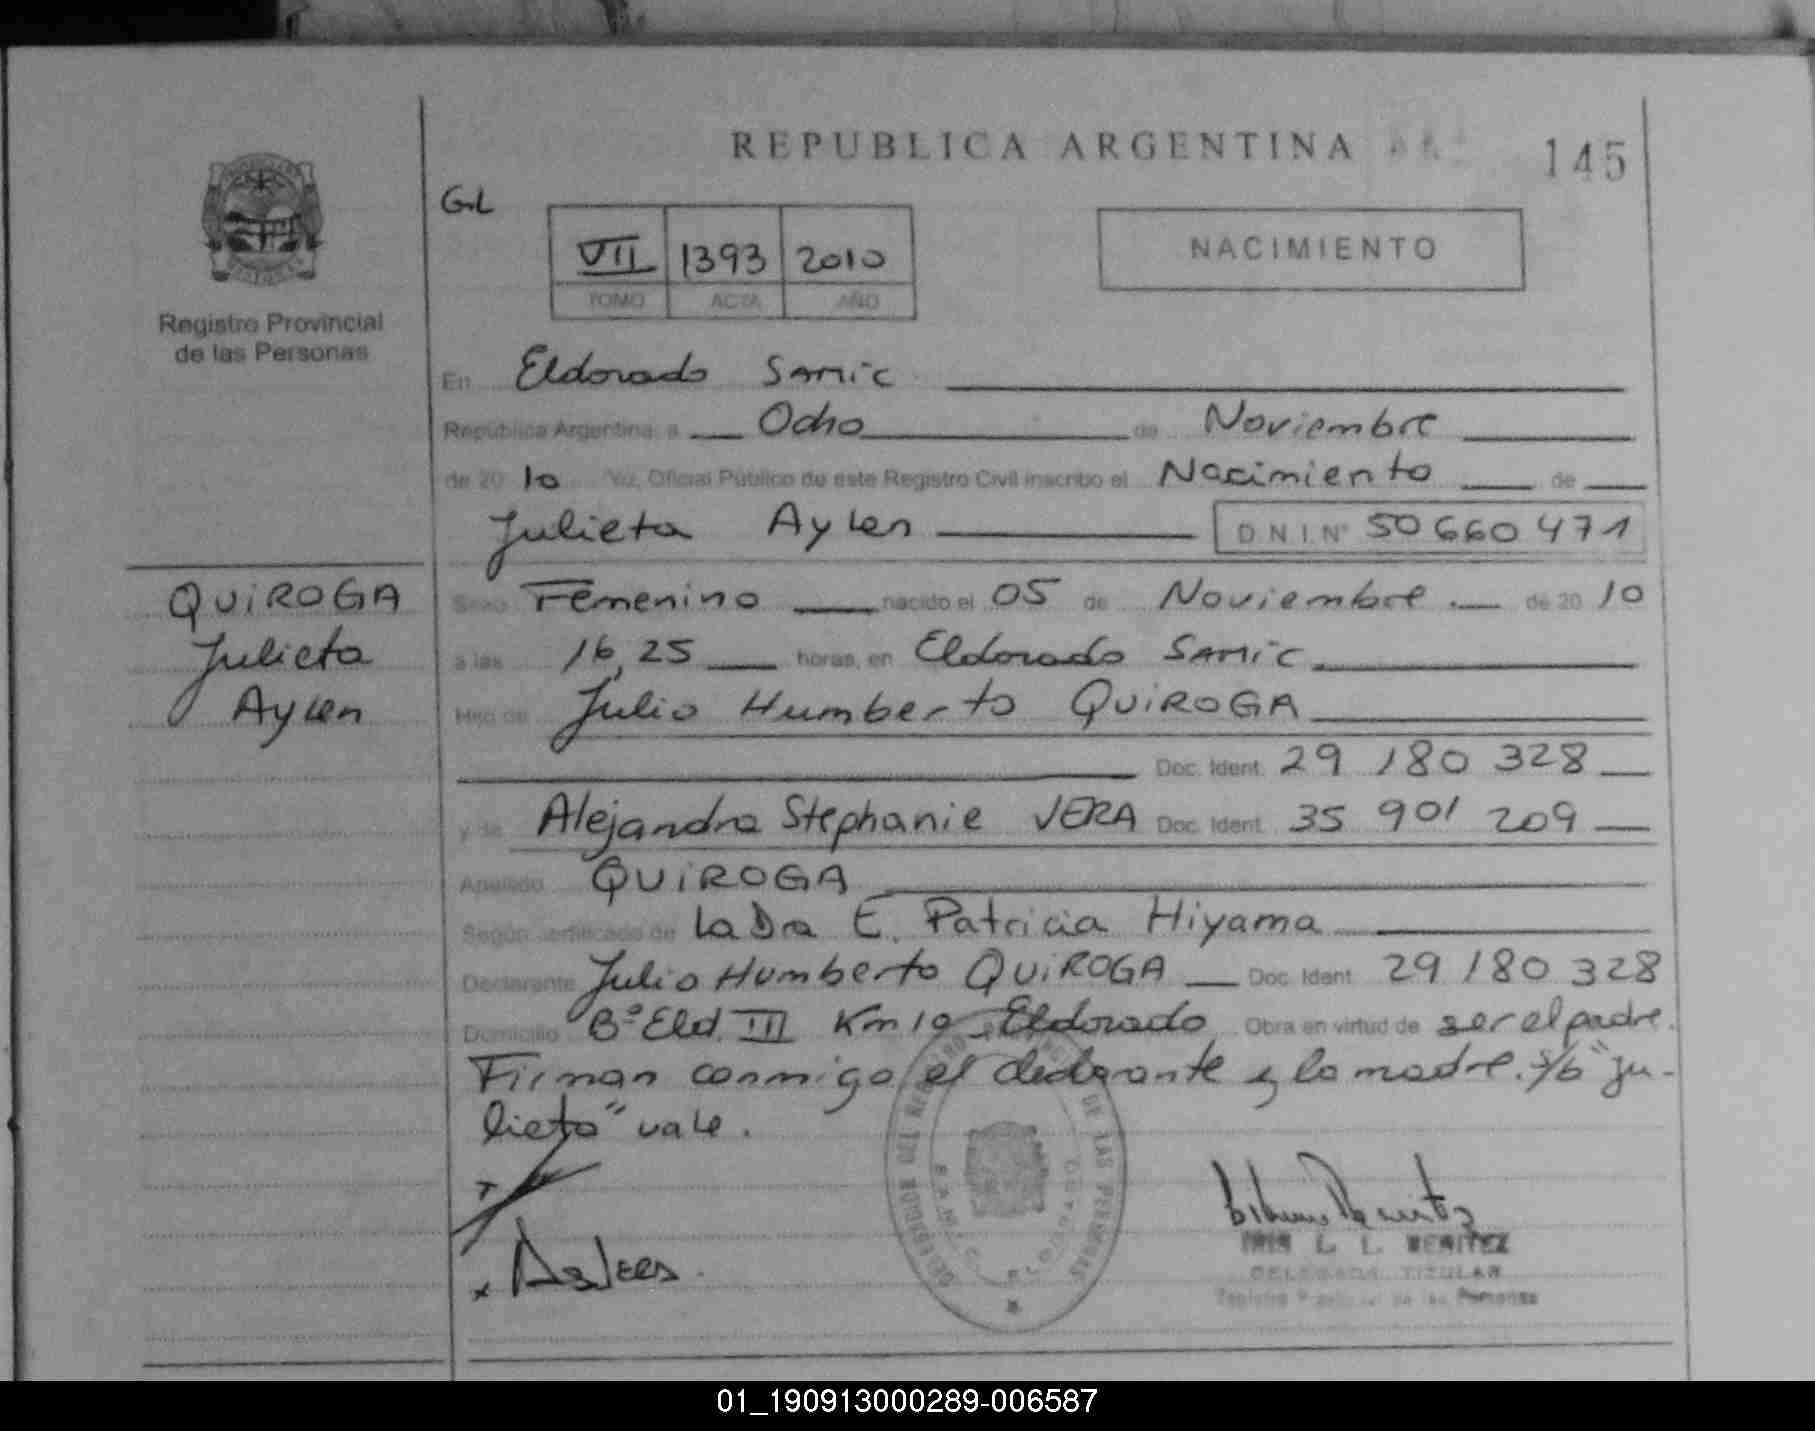 REPUBLICA ARGENTINA
145
GL
VII 1393 2010
TOMO ACTA AÑO
NACIMIENTO
Registro Provincial
de las Personas
En Eldorado SAMIC
República Argentina a Ocho de Noviembre
de 20 10 Yo, Oficial Público de este Registro Civil inscribo el Nacimiento de
Julieta Aylen D.N.I.Nº 50660471
QUIROGA
Julieta
Aylen
Sexo Femenino nacido el 05 de Noviembre de 20 10
a las 16,25 horas, en Eldorado SAMIC
Hijo de Julio Humberto QUIROGA
Doc. Ident. 29 180 328
y de Alejandra Stephanie VERA Doc. Ident. 35 901 209
Apellido QUIROGA
Según certificado de la Dra E. Patricia Hiyama
Declarante Julio Humberto QUIROGA Doc. Ident. 29 180 328
Domicilio Bº Eld. III Km 10 Eldorado Obra en virtud de ser el padre.
Firman conmigo el declarante y la madre. s/b "Ju-
lieta" vale.
DELEGACION DEL REGISTRO DE LAS PERSONAS
S.A.M.I.C. ELDORADO
IRIS L. L. BENITEZ
DELEGADA TITULAR
Registro Provincial de las Personas
01_190913000289-006587